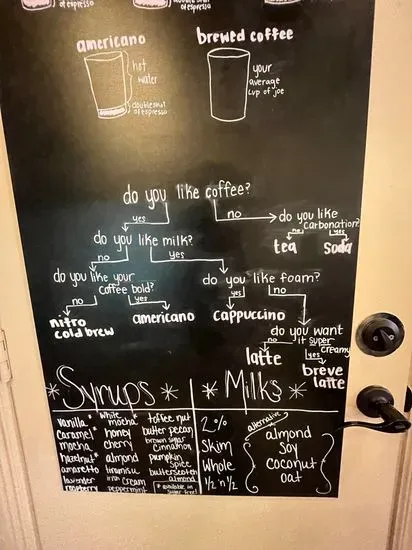 of espresso
of espresso
americano
hot
water
double shot
of espresso
brewed coffee
your
average
cup of joe
do you like coffee?
yes
no
do you like
carbonation?
no
yes
tea
soda
do you like milk?
no
yes
do you like your
coffee bold?
no
yes
nitro
cold brew
americano
do you like foam?
yes
no
cappuccino
do you want
it super
creamy
yes
no
latte
breve
latte
* Syrups *
vanilla *
caramel *
mocha
hazelnut *
amaretto
lavender
raspberry
white
mocha *
honey
cherry
almond
tiramisu
irish cream
peppermint
toffee nut
butter pecan
brown sugar
cinnamon
pumpkin
spice
butterscotch
almond
* available in
sugar free!
* Milks *
2%
Skim
Whole
½ 'n ½
alternative
almond
soy
coconut
oat